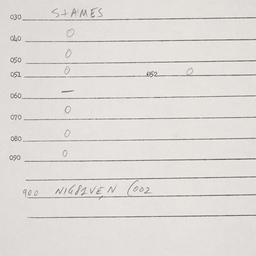 030 STAMES
040 0
050 0
051 0 052 0
060 —
070 0
080 0
090 0
900 NIG81VEN (002